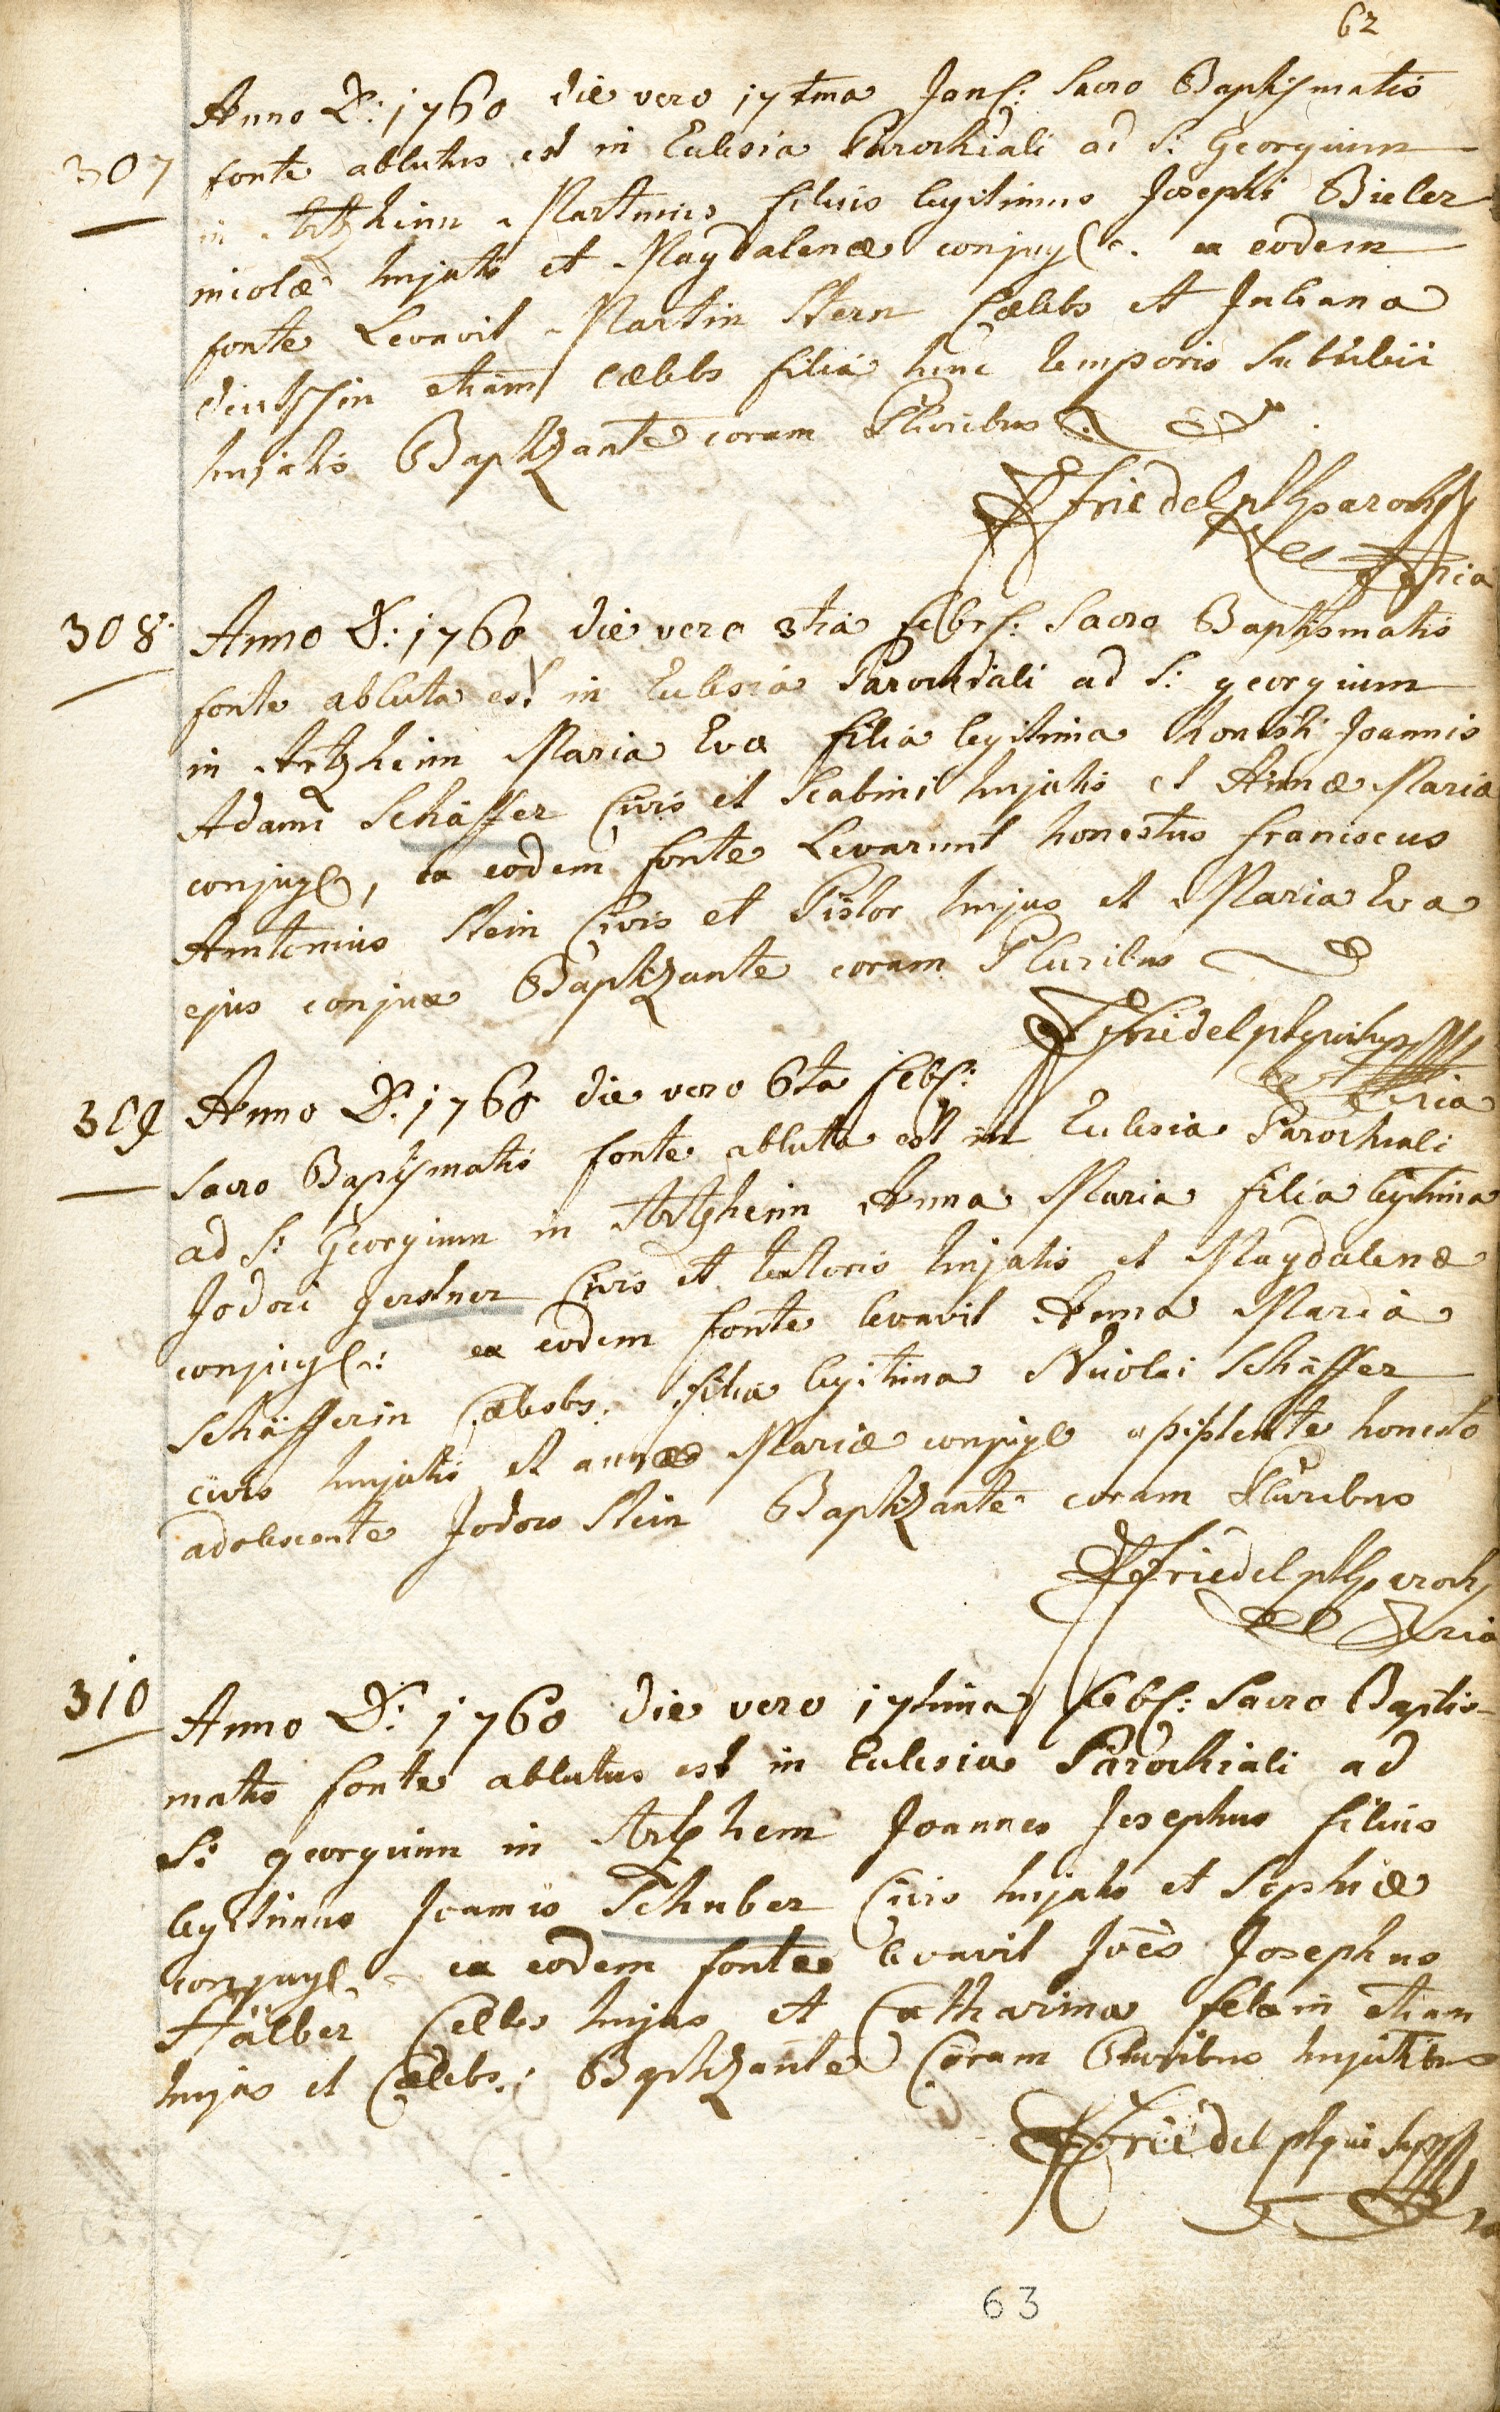 62
Anno D: 1760 die vero 17tma Jan: Sacro Baptismatis
307 fonte ablutus est in Eclesia Parochiali ad S: Georgium
in Artzheim Martinus filius legitimus Josephi Bieler
incolæ hujatis et Magdalenæ conjug: ex eodem
fonte Levavit Martin Stern Cælebs et Juliana
etiam cælebs filia hinc temporis
hujatis Baptizante coram Pluribus
Friedel parochus
308. Anno D: 1760 die vero 3tia febr: Sacro Baptismatis
fonte abluta est in Eclesia Parochiali ad S: georgium
in Artzheim Maria Eva filia legitima honesti Joannis
Adami Schäffer Civis et Scabini hujatis et Annæ Mariæ
conjug, ex eodem fonte Levarunt honestus franciscus
Antonius Stein Civis et Pistor hujus et Maria Eva
ejus conjux Baptizante coram Pluribus
Friedel
309 Anno D: 1760 die vero 6ta feb:
Sacro Baptismatis fonte abluta est in Eclesia Parochiali
ad S: Georgium in Artzheim Anna Maria filia legitima
Jodoci gerstner Civis et textoris hujatis et Magdalenæ
conjug: ex eodem fonte levavit Anna Maria
Schäfferin Cælebs: filia legitima Nicolai Schäffer
civis hujatis et annæ Mariæ conjug assistente honesto
adolescente Jodoco Stein Baptizante coram Pluribus
Friedel parochus
310 Anno D: 1760 die vero 17tima feb: Sacro Baptis-
matis fonte ablutus est in Eclesia Parochiali ad
S: georgium in Artzheim Joannes Josephus filius
legitimus Joannis Schuber Civis hujatis et Sophiæ
conjug ex eodem fonte levavit Joēs Josephus
Hälber Cælebs hujus et Catharina etiam
hujas et Cælebs: Baptizante Coram Pluribus hujatibus
Friedel
63